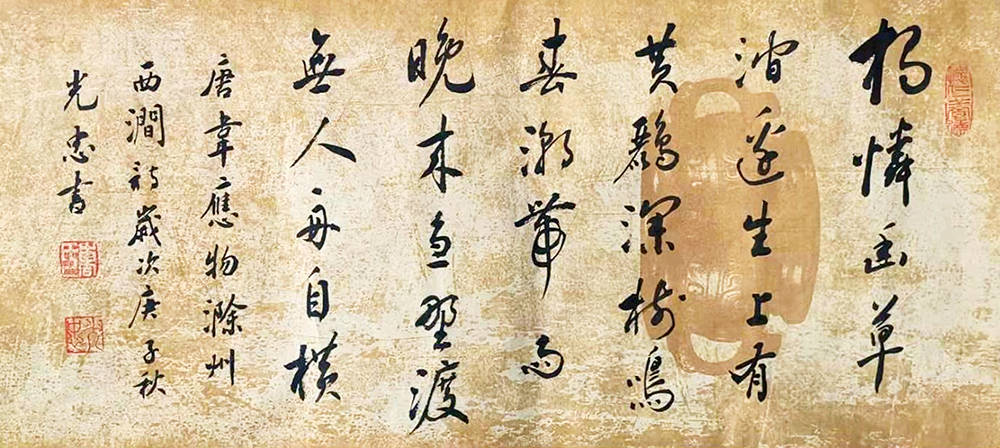 獨憐幽草
澗邊生上有
黃鸝深樹鳴
春潮帶雨
晚來急野渡
無人舟自橫
唐韋應物滁州
西澗詩歲次庚子秋
光忠書